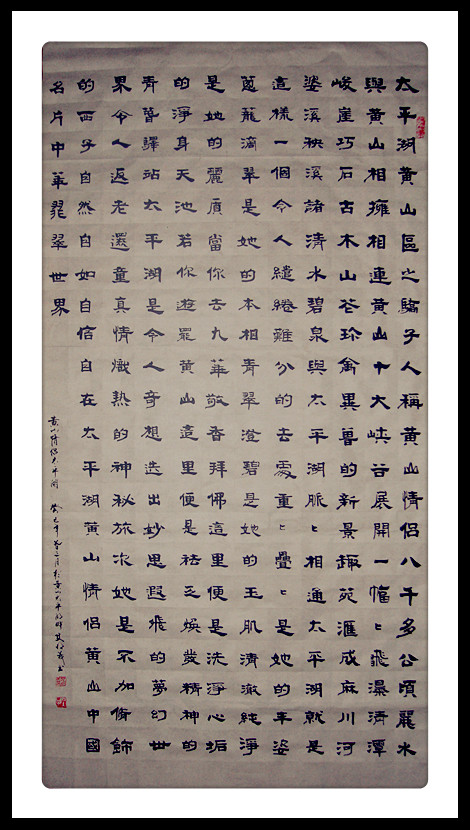 太平湖黄山區之驕子人稱黄山情侣八千多公頃麗水
與黄山相擁相連黄山十大峡谷展開一幅々飛瀑清潭
峻崖巧石古木山花珍禽異獸的新景趣苑滙成麻川河
婆溪秧溪諸清水碧泉與太平湖脈々相通太平湖就是
這樣一個令人繾綣難分的去處重々疊々是她的丰姿
蔥蘢滴翠是她的本相青翠澄碧是她的玉肌清澈純淨
是她的麗質當你去九華敬香拜佛這里便是洗淨心垢
的淨身天池若你遊罷黄山這里便是祛乏焕發精神的
青驛站太平湖是令人奇想迭出妙思遐飛的夢幻世
界令人返老還童真情熾熱的神秘旅次她是不加脩飾
的西子自然自如自信自在太平湖黄山情侣黄山中國
名片中華翡翠世界
黄山情侣太平湖 癸巳年月於黄山太平書